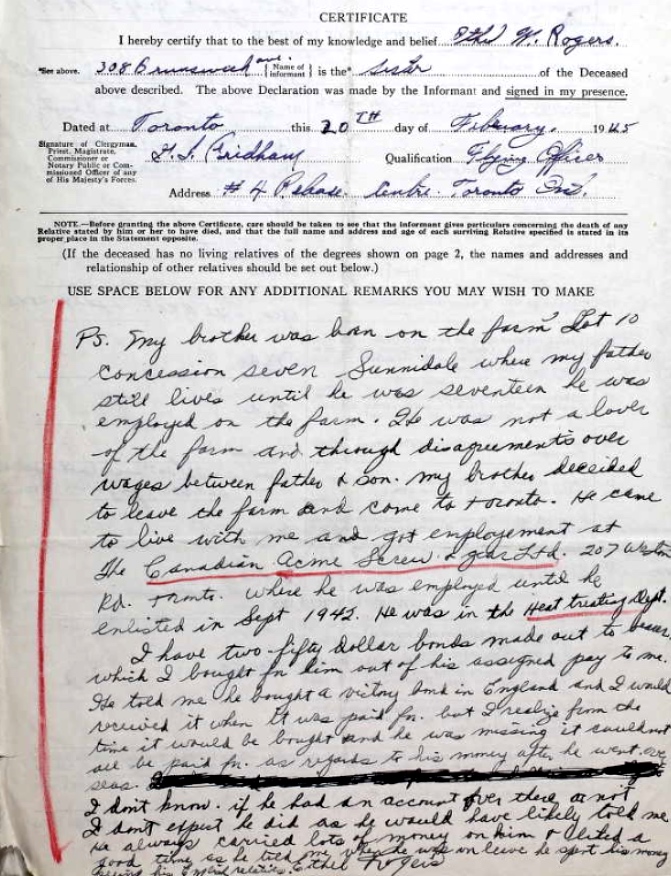 CERTIFICATE
I hereby certify that to the best of my knowledge and belief Ethel W. Rogers.
*See above. 308 Brunswick ave. {Name of informant} is the* Sister of the Deceased
above described. The above Declaration was made by the Informant and signed in my presence.
Dated at Toronto this 20TH day of February, 1945
Signature of Clergyman, Priest, Magistrate, Commissioner or Notary Public or Commissioned Officer of any of His Majesty's Forces. Qualification Flying Officer
Address # 4 Release Centre. Toronto Ont.
NOTE.—Before granting the above Certificate, care should be taken to see that the informant gives particulars concerning the death of any
Relative stated by him or her to have died, and that the full name and address and age of each surviving Relative specified is stated in its
proper place in the Statement opposite.
(If the deceased has no living relatives of the degrees shown on page 2, the names and addresses and
relationship of other relatives should be set out below.)
USE SPACE BELOW FOR ANY ADDITIONAL REMARKS YOU MAY WISH TO MAKE
PS. My brother was born on the farm Lot 10
concession seven Sunnidale where my father
still lives until he was seventeen he was
employed on the farm. He was not a lover
of the farm and through disagreements over
wages between father & son. my brother decided
to leave the farm and come to toronto. He came
to live with me and got employement at
The Canadian Acme Screw & gear Ltd. 207 Weston
Rd. toronto. where he was employed until he
enlisted in Sept 1942. He was in the Heat treating Dept.
I have two fifty dollar bonds made out to
which I bought for him out of his assigned pay to me.
He told me he bought a victory bond in England and I would
received it when it was paid for. but I realize from the
time it would be bought and he was missing it couldnot
all be paid for. as regards to his money after he went over
seas.
I don't know. if he had an account over there or not
I don't expect he did as he would have likely told me
He always carried lots of money on him & liked a
good time as he told me when he was on leave he spent his money
seeing his English relatives. Ethel Rogers